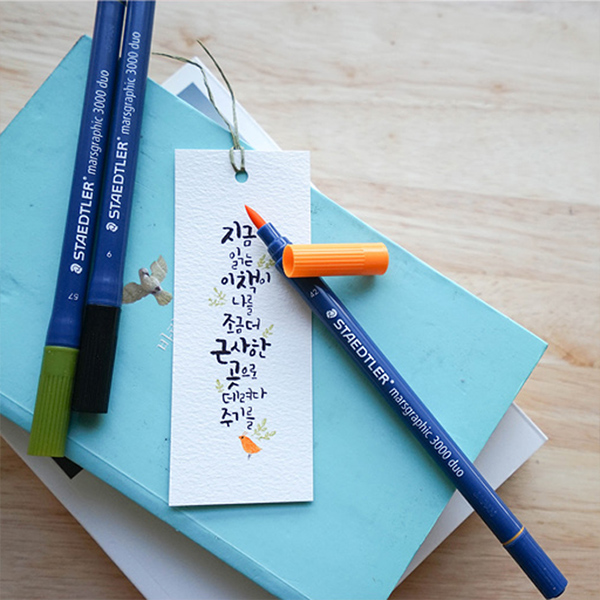 지금
읽는
이 책이
나를
조금 더
근사한
곳으로
데려다
주기를
STAEDTLER® marsgraphic 3000 duo
57
STAEDTLER® marsgraphic 3000 duo
9
42
STAEDTLER® marsgraphic 3000 duo